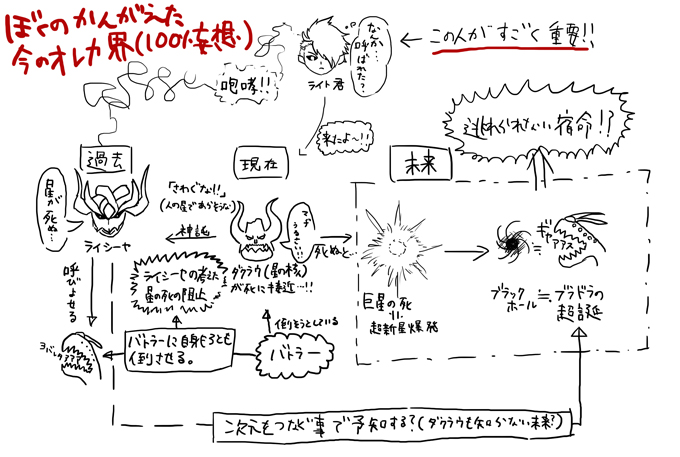 ぼくのかんがえた
今のオレカ界(100%妄想)
なんか…
呼ばれた?
ライト君
← この人がすごく重要!!
咆哮!!
来たよ〜!!
逃れられない宿命!?
過去
現在
未来
星が
死ぬ…
ライシーヤ
「さわぐな!!」
(人の星であらそうな)
神託
マヂ
うるさい!!
死ぬと…
ダクラウ(星の核)
が死に接近…!!
ライシーヤの考えた
星の死の阻止
呼びよせる
バトラーに自身もろとも
倒させる。
倒そうとしている
バトラー
巨星の死
॥
超新星爆発
≒
ギャアアス
ブラック
ホール
≒
ブラドラの
超誕
次元をつなぐ事で予知する?(ダクラウも知らない未来?)